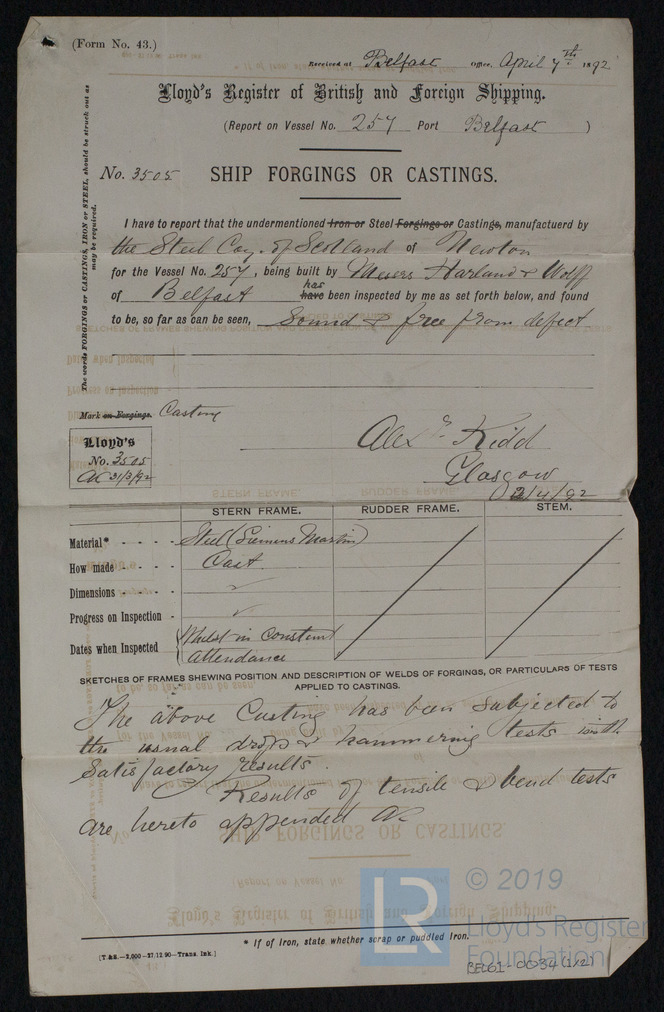 (Form No. 43.)
Received at Belfast Office, April 7th 1892
Lloyd's Register of British and Foreign Shipping.
(Report on Vessel No. 257 Port Belfast )
No. 3505 SHIP FORGINGS OR CASTINGS.
The words FORGINGS or CASTINGS, IRON or STEEL, should be struck out as
may be required.
I have to report that the undermentioned Iron or Steel Forgings or Castings, manufactuerd by
the Steel Coy. of Scotland of Newton
for the Vessel No. 257, being built by Messrs Harland & Wolff
has
of Belfast have been inspected by me as set forth below, and found
to be, so far as can be seen, Sound & free from defect
Mark on Forgings. Casting
Lloyd's
No. 3505
AK 31/3/92
Alexr Kidd
Glasgow
2/4/92
STERN FRAME. RUDDER FRAME. STEM.
Material* - - - - Steel (Siemens Martin)
How made - - - - Cast.
Dimensions - - - -
Progress on Inspection -
Dates when Inspected Whilst in constant
attendance
SKETCHES OF FRAMES SHEWING POSITION AND DESCRIPTION OF WELDS OF FORGINGS, OR PARTICULARS OF TESTS
APPLIED TO CASTINGS.
The above Casting has been subjected to
the usual drop & hammering tests with
satisfactory results.
Results of tensile & bend tests
are hereto appended AK
© 2019
LR Lloyd's Register
Foundation
* If of Iron, state whether scrap or puddled Iron.
[T & S.—2,000—27.12.90—Trans. Ink.]
BEL61-0034 (1/2)